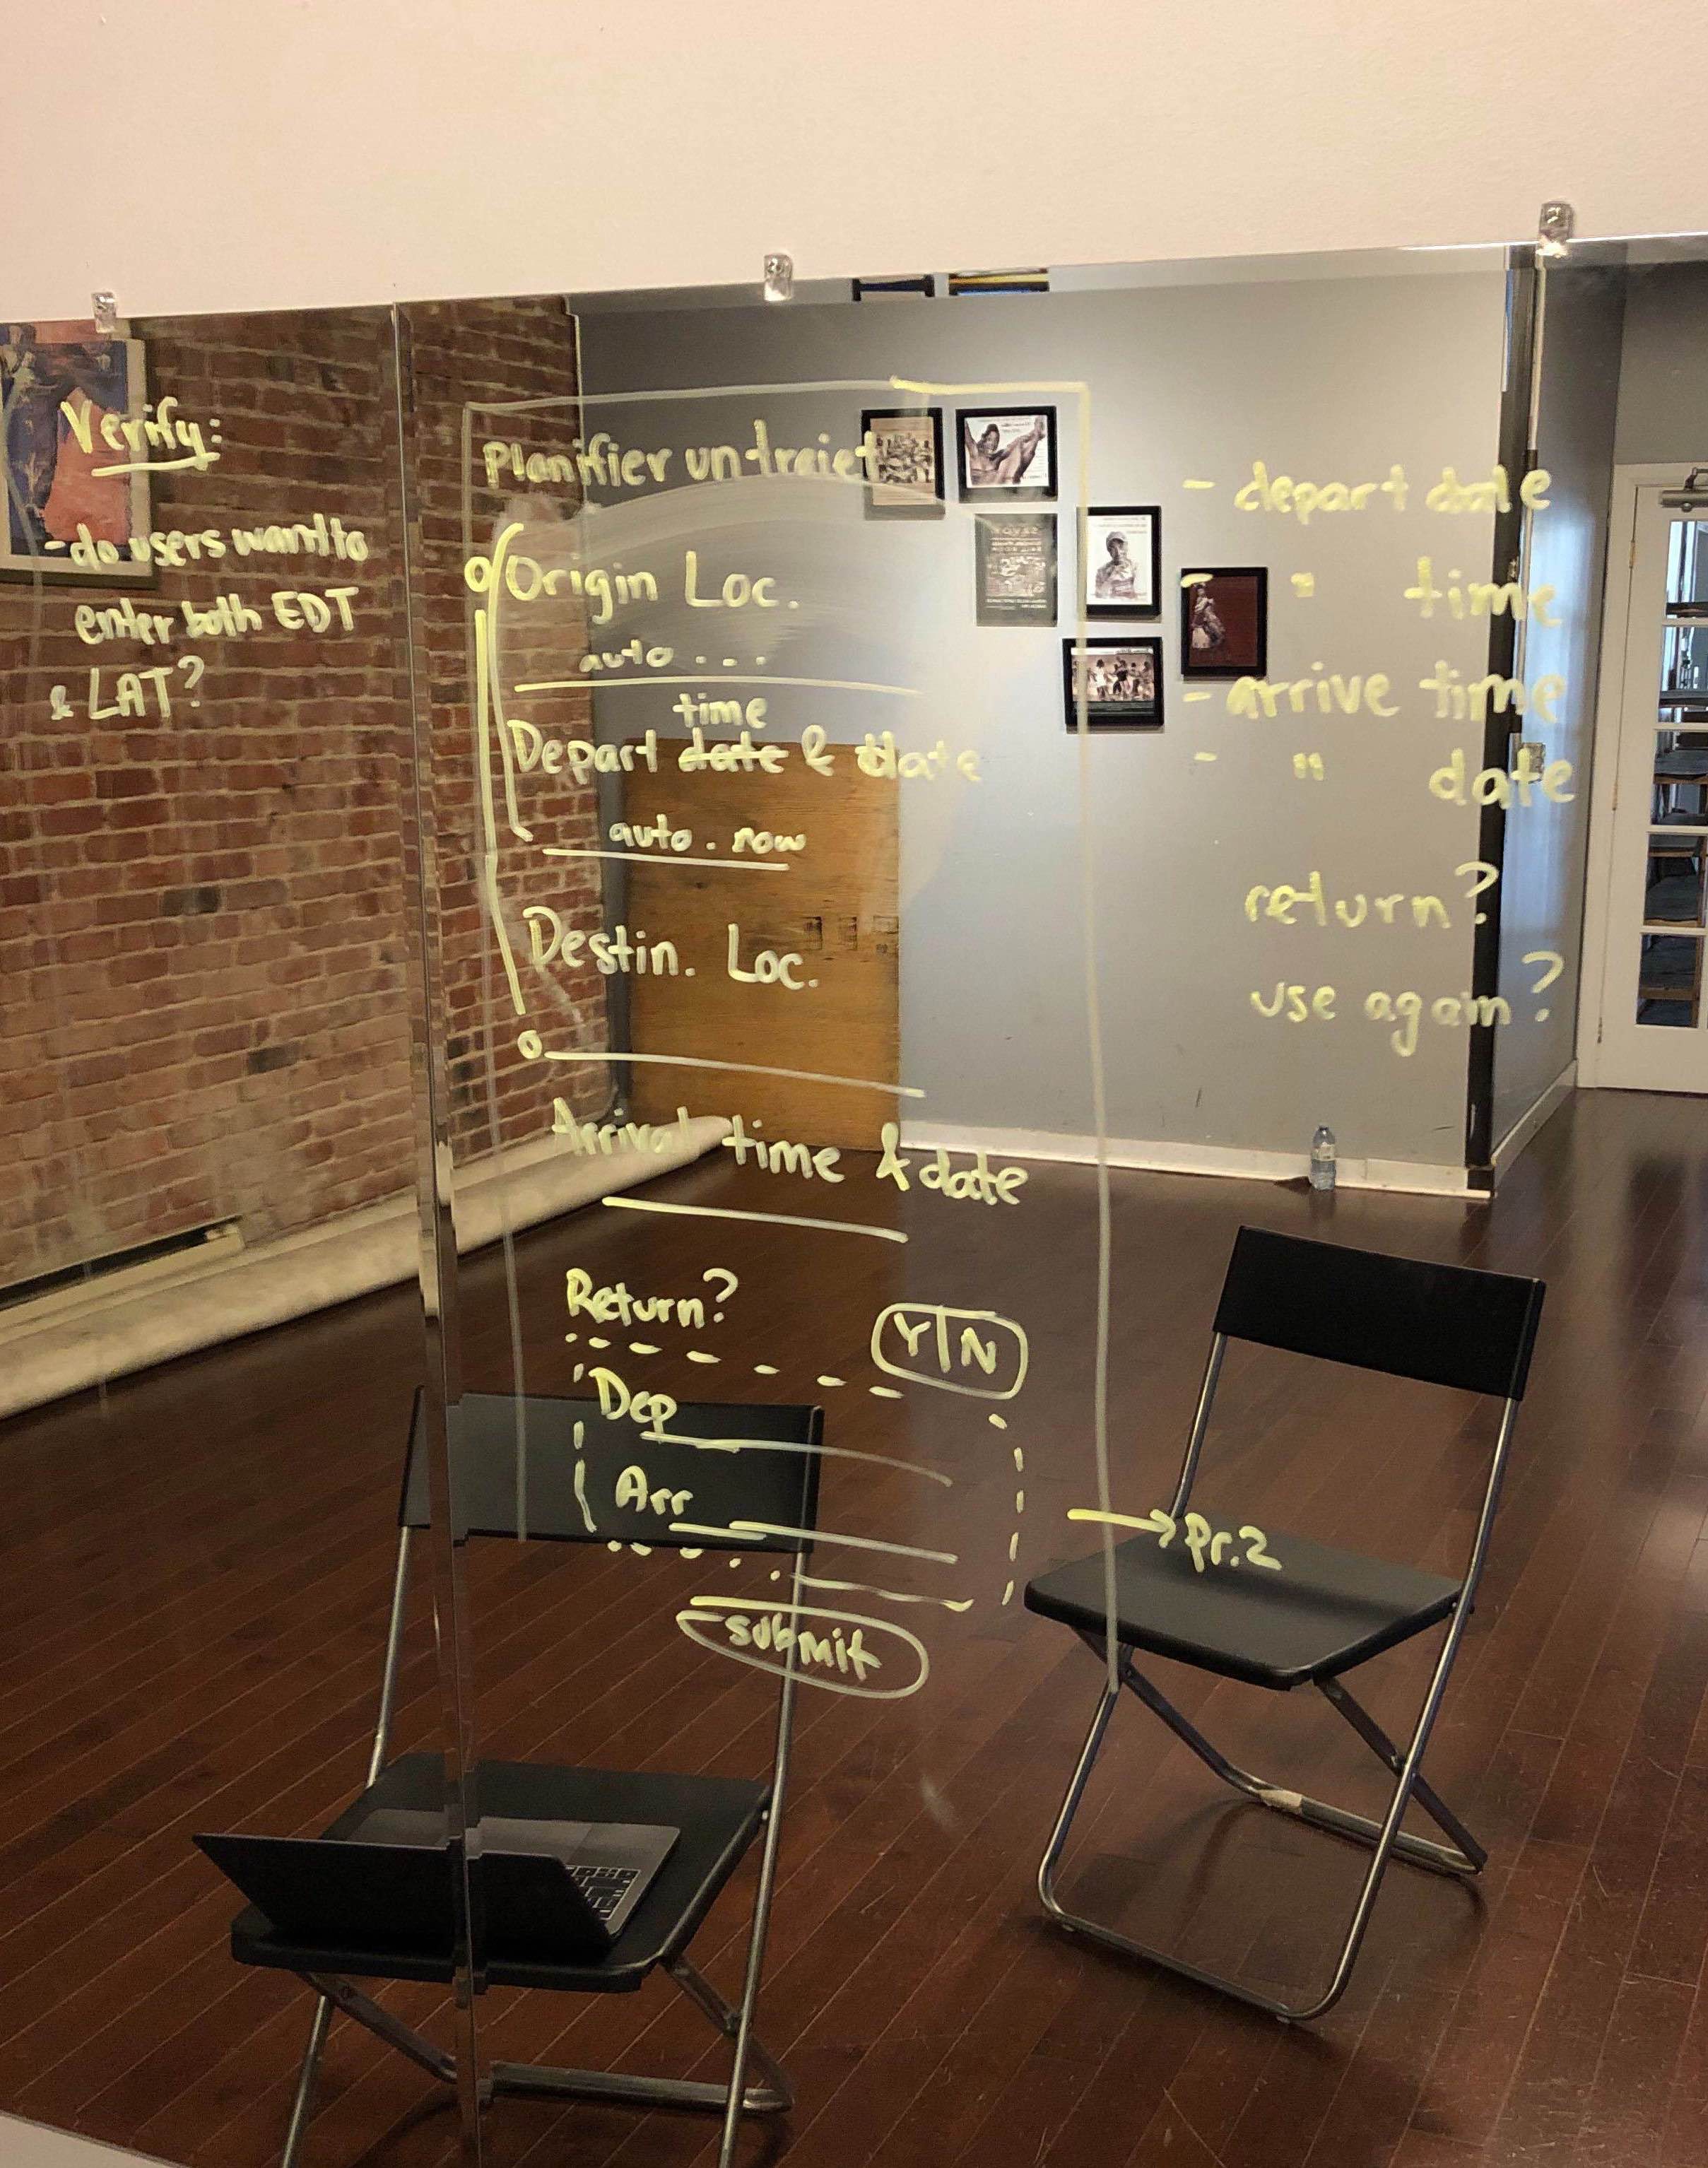 Verify:
- do users want to
enter both EDT
& LAT?
Planifier un trajet
Origin Loc.
auto...
time
Depart date & date
auto. now
Destin. Loc.
Arrival time & date
Return?
Y|N
Dep
Arr
submit
- depart date
- " time
- arrive time
- " date
return?
use again?
→ Pr.2